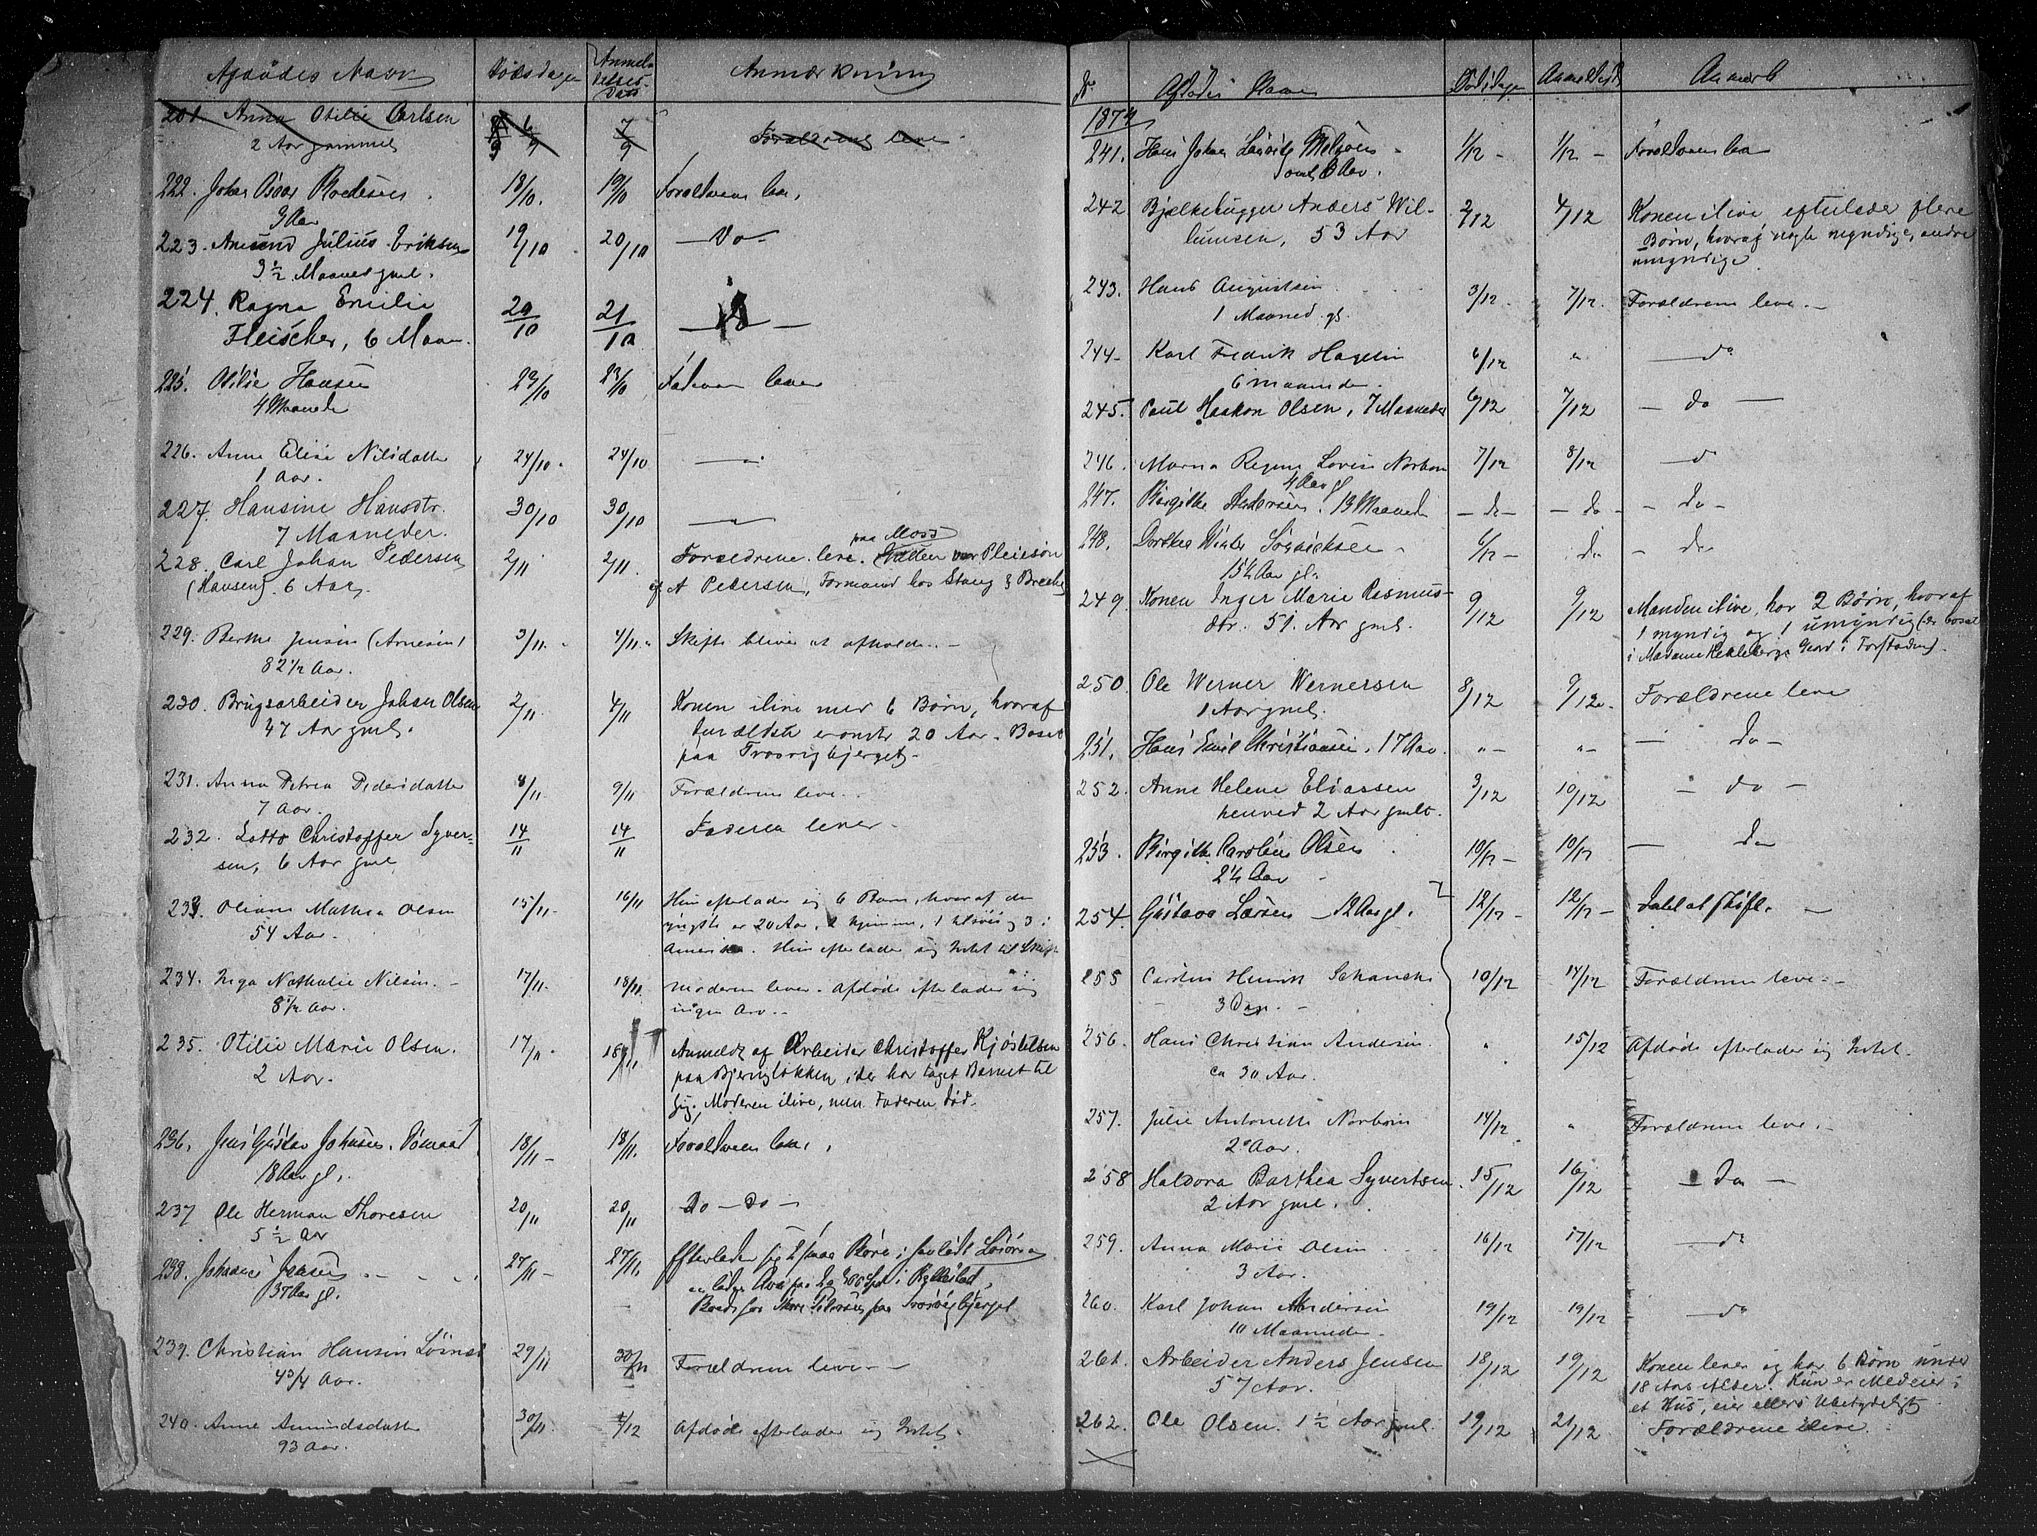 Afdødes Navn Dødsdagen Anmel-
delses-
Dato Anmærkning
201. Anna Otilie Carlsen 6/9 7/9 Forældrene leve
2 Aar gammel
222. Johan Oscar 18/10. 19/10 Forældrene leve,
9 Aar
223. Amund Julius Eriksen 19/10 20/10 — Do —
3 1/2 Maaned gml.
224. Ragna Emilie 20/10 21/10
Fleischer, 6 Maan.
225. Otilie Hansen 23/10 23/10 Faderen lever
4 Maaneder
226. Anne Elise Nilsdatter 24/10. 24/10 — " —
1 Aar.
227. Hansine Hansdtr. 30/10 30/10 — " —
7 Maaneder.
paa Moss
228. Carl Johan Pedersen 2/11 2/11. Forældrene leve. var Pleiesøn
(Hansen). 6 Aar. af A Petersen, Formand hos Stang &
229. Berthe Jensen (Arnesen) 3/11. 4/11. Skifte bliver at afholde. —
82 1/2 Aar.
230. Brugsarbeider Johan Olsen 2/11. 4/11 Konen ilive med 6 Børn, hvoraf
47 Aar gml. den ældste er omtr 20 Aar. Boset
paa Trosvigbjerget.
231. Anna Petrea Pedersdatter 8/11. 9/11 Forældrene leve.
7 Aar.
232. Lotto Christoffer Syver- 14/11 14/11 Faderen lever.
sen, 6 Aar gml
233. Oliane Mathea Olsen 15/11. 16/11 Hun efterlader sig 6 Børn, hvoraf den
54 Aar. yngste er 20 Aar, 2 hjemme, 1 og 3 i
Amerika. Hun efterlader sig Intet til Skifte
234. Inga Nathalie Nilsen. — 17/11. 18/11 Moderen lever. Afdøde efterlader sig
8 1/2 Aar. ingen Arv. —
235. Otilie Marie Olsen. 17/11 18/11 Anmeldt af Arbeider Christoffer Kjøstelsen
2 Aar. paa Bjerngløkken, der har taget Barnet til
sig. Moderen ilive, men Faderen død.
236. Jens Gustav Johnsen 18/11 — 18/11. Forældrene leve,
18 Aar gl.
237 Ole Herman Thoresen 20/11 20/11 Do — Do —
5 1/2 Aar
238. Jensen 27/11 — 27/11. Efterlader sig 2 smaa Børn i
37 Aar gl.
paa Trosvigbjerget
239. Christian Hansen 29/11 30/11 Forældrene leve. —
4 3/4 Aar.
240. Anne Amundsdatter 30/11. 1/12 Afdøde efterlader sig Intet.
93 Aar.
No Afdødes Navn Dødsdagen Anmeldt Anmærk
1874
241. Hans Johan 1/12 — 1/12 — Forældrene leve
242 Bjælkehugger Anders Wil- 2/12 4/12 Konen ilive, efterlader flere
lumsen, 53 Aar Børn, hvoraf nogle myndige, andre
umyndige
243. Hans Augustsen 3/12. 7/12. Forældrene leve. —
1 Maaned gl.
244 — Karl Fredrik Hagelin 6/12 " — do
6 maaneder.
245. Paul Haakon Olsen, 7 Maaneder 6/12 7/12 — do —
246. Marna Regine Lovise Norbom 7/12 8/12 — d
4 Aar gl
247. Birgithe Andersen. 13 Maaneder — do — — do — — do —
248. Dorthea 6/12 — do — do
15 1/2 Aar gl.
249 Konen Inger Marie Rasmus- 9/12 9/12 Manden ilive, har 2 Børn, hvoraf
dtr. 51. Aar gml. 1 myndig og 1 umyndig (er bosat
i Madame Gaard i Forstaden).
250. Ole Werner Wernersen 8/12 9/12. Forældrene leve
1 Aar gml.
251. Hans Emil Christiansen, 17 Aar. " — " — — do —
252. Anne Helene Eliassen 3/12 10/12 — do —
henved 2 Aar gmlt.
253. Birgithe Karoline Olsen 10/12 — 10/12 — do
2 1/2 Aar
254. Gustava Larsen — 12 Aar gl. 12/12 — 12/12 — —
255 Carsten Henrik Schanche 10/12 14/12 Forældrene leve. —
3 Dage.
256. Hans Christian Andersen. " 15/12 Afdøde efterlader sig Intet.
ca 30 Aar.
257. Julie Antonette Norbom 14/12 " Forældrene leve. —
2 Aar.
258 Haldora Barthea Syvertsen. 15/12 16/12 — Do —
2 Aar gml.
259. Anna Marie Olsen 16/12 17/12 — do
3 Aar.
260. Karl Johan Andersen 19/12 19/12 — do
10 Maaneder.
261. Arbeider Anders Jensen 18/12 19/12 Konen lever og har 6 Børn under
57 Aar. 18 Aars Alder. Hun er Medeier i
et Hus, eier ellers Ubetydeligt
262. Ole Olsen. 1 1/2 Aar gml. 19/12 21/12 Forældrene ilive.